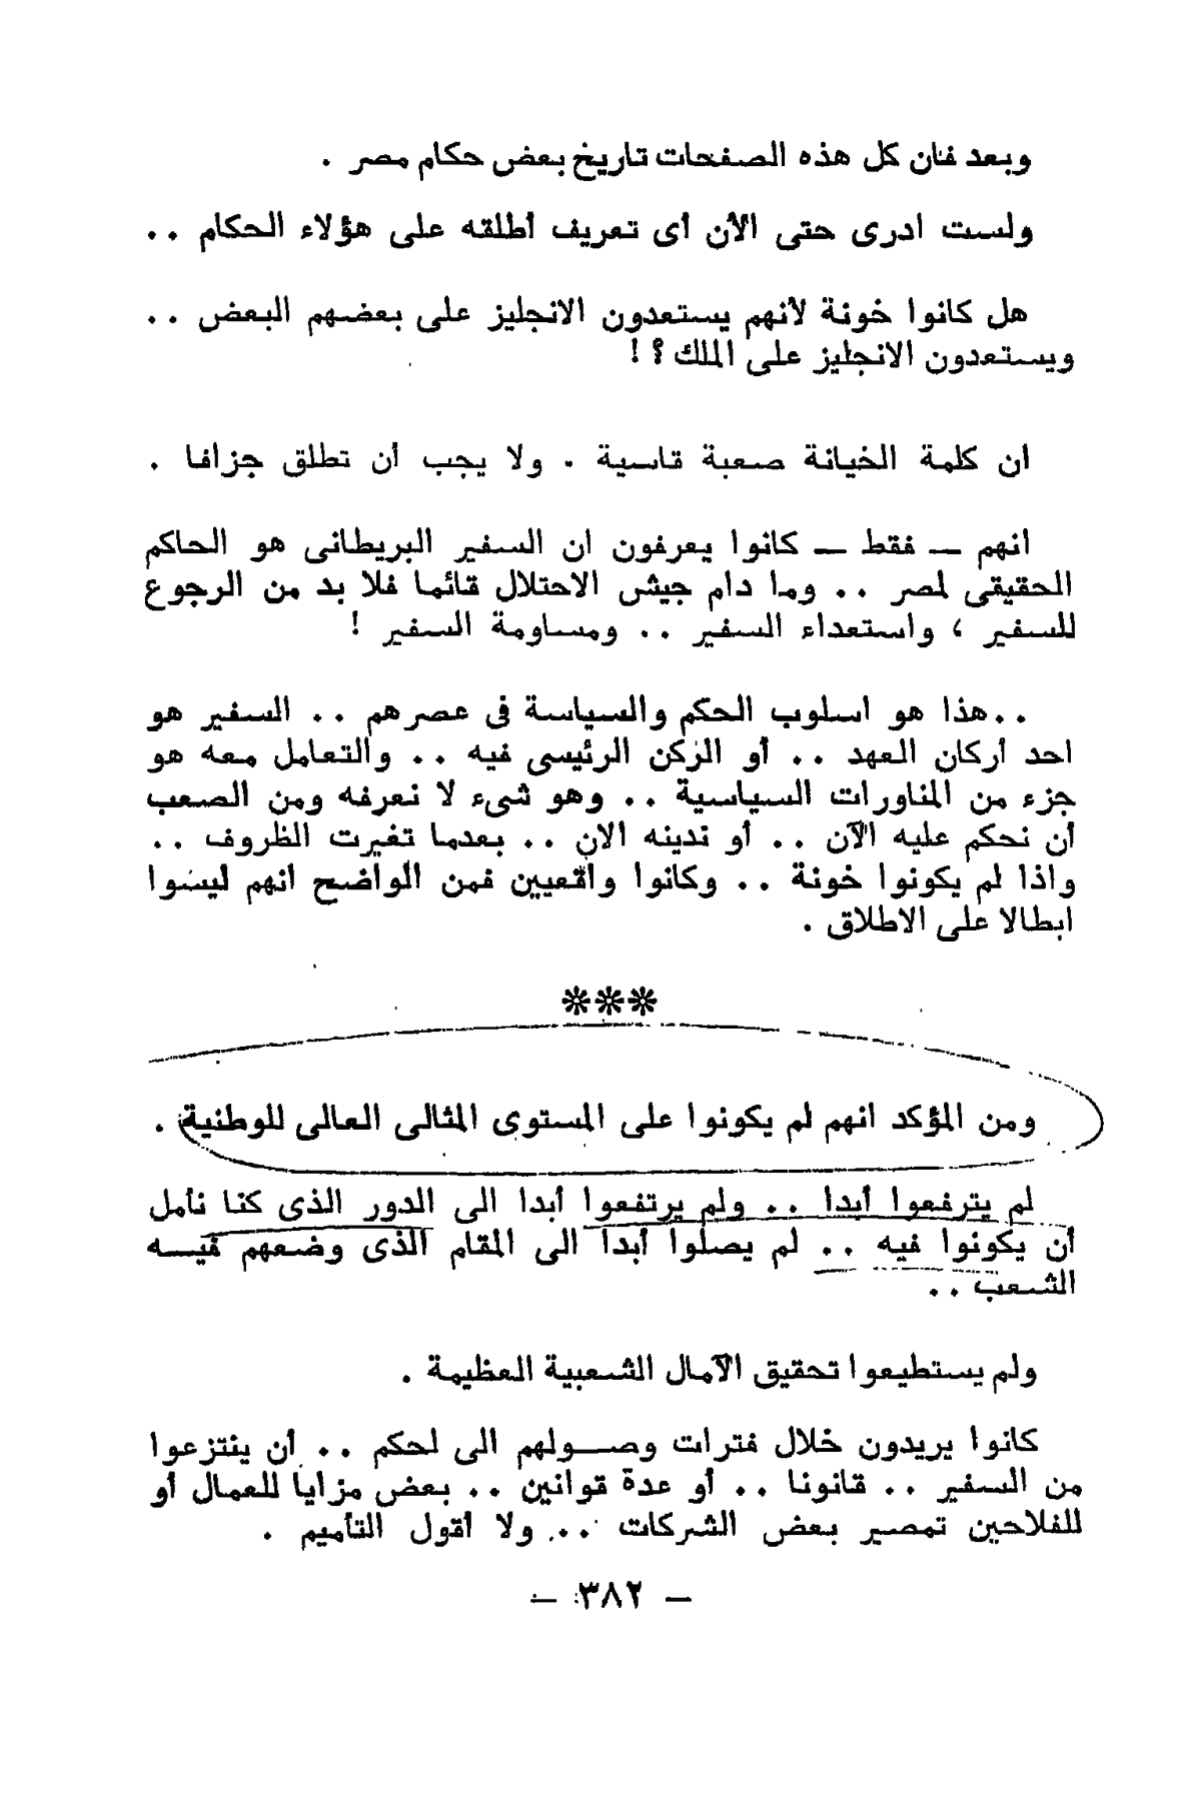 وبعد فان كل هذه الصفحات تاريخ بعض حكام مصر .
ولست ادرى حتى الأن أى تعريف أطلقه على هؤلاء الحكام ..
هل كانوا خونة لأنهم يستعدون الانجليز على بعضهم البعض ..
ويستعدون الانجليز على الملك ؟ !
ان كلمة الخيانة صعبة قاسية . ولا يجب أن تطلق جزافا .
انهم — فقط — كانوا يعرفون ان السفير البريطانى هو الحاكم
الحقيقى لمصر .. وما دام جيش الاحتلال قائما فلا بد من الرجوع
للسفير ، واستعداء السفير .. ومساومة السفير !
..هذا هو اسلوب الحكم والسياسة فى عصرهم .. السفير هو
احد أركان العهد .. أو الركن الرئيسى فيه .. والتعامل معه هو
جزء من المناورات السياسية .. وهو شىء لا نعرفه ومن الصعب
أن نحكم عليه الآن .. أو ندينه الان .. بعدما تغيرت الظروف ..
واذا لم يكونوا خونة .. وكانوا واقعيين فمن الواضح انهم ليسوا
ابطالا على الاطلاق .
***
ومن المؤكد انهم لم يكونوا على المستوى المثالى العالى للوطنية .
لم يترفعوا أبدا .. ولم يرتفعوا أبدا الى الدور الذى كنا نأمل
أن يكونوا فيه .. لم يصلوا أبدا الى المقام الذى وضعهم فيـــه
الشعب ..
ولم يستطيعوا تحقيق الآمال الشعبية العظيمة .
كانوا يريدون خلال فترات وصـــولهم الى لحكم .. أن ينتزعوا
من السفير .. قانونا .. أو عدة قوانين .. بعض مزايا للعمال أو
للفلاحين تمصير بعض الشركات .. ولا أقول التأميم .
— ٣٨٢ —